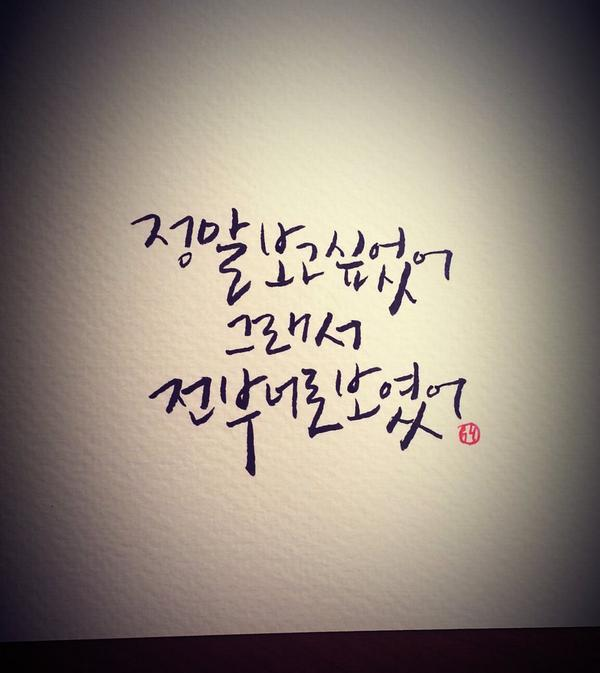 정말 보고 싶었어
그래서
전부 너로 보였어